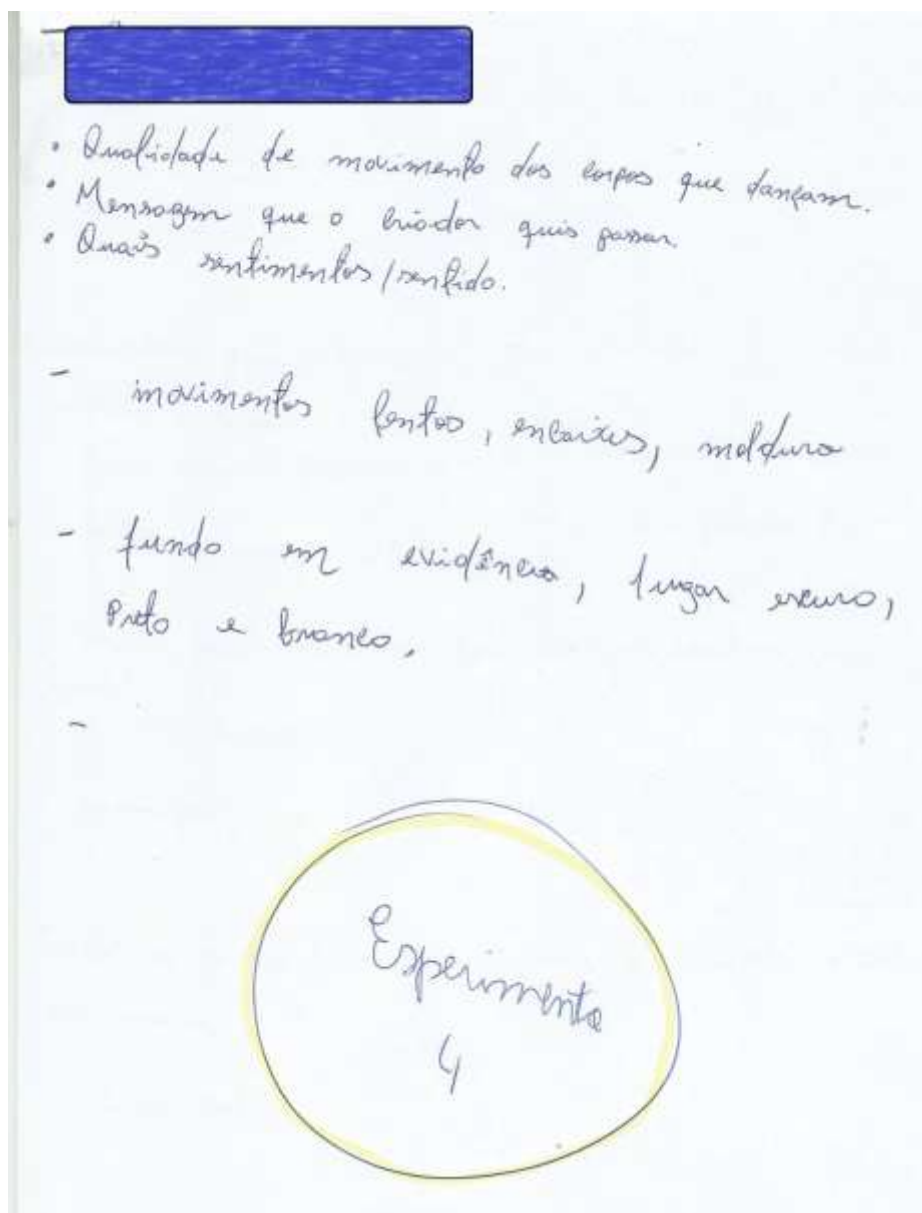 • Qualidade de movimento dos corpos que dançam.
• Mensagem que o criador quis passar.
• Quais sentimentos/sentido.
- movimentos lentos, encaixes, moldura
- fundo em evidência, lugar escuro,
Preto e branco.
-
Experimento
4